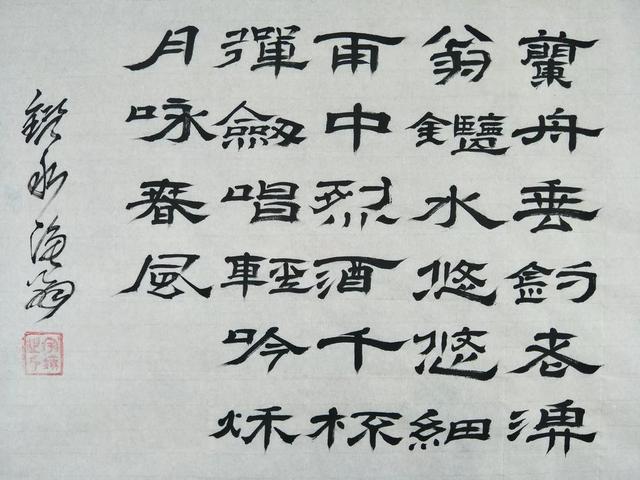 蘭舟垂釣老漁
翁鑑水悠悠細
雨中烈酒千杯
彈劍唱輕吟秌
月咏春風
鑑水漁翁